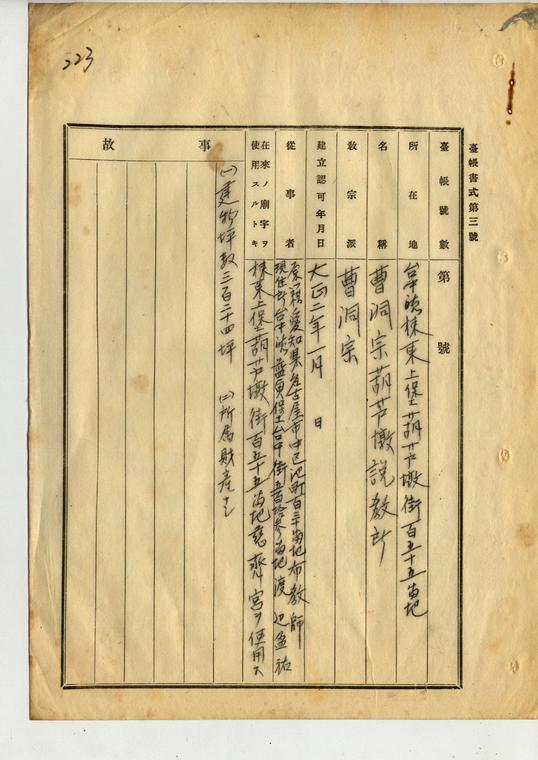 223
臺帳書式第三號
臺帳號數 第 號
所在地 台中廳揀東上堡葫芦墩街百五十五番地
名稱 曹洞宗葫芦墩説教所
教宗派 曹洞宗
建立認可年月日 大正二年一月 日
從事者 原籍愛知縣名古屋市中区池町百三十番地布教師
現住所台中廳藍興堡台中街五百拾参番地 渡辺
在來ノ廟宇ヲ使用スルトキ 揀東上堡葫芦墩街百五十五番地慈齊宮ヲ使用ス
事故
(一)建物坪数三百二十四坪 (二)所屬財產ナシ